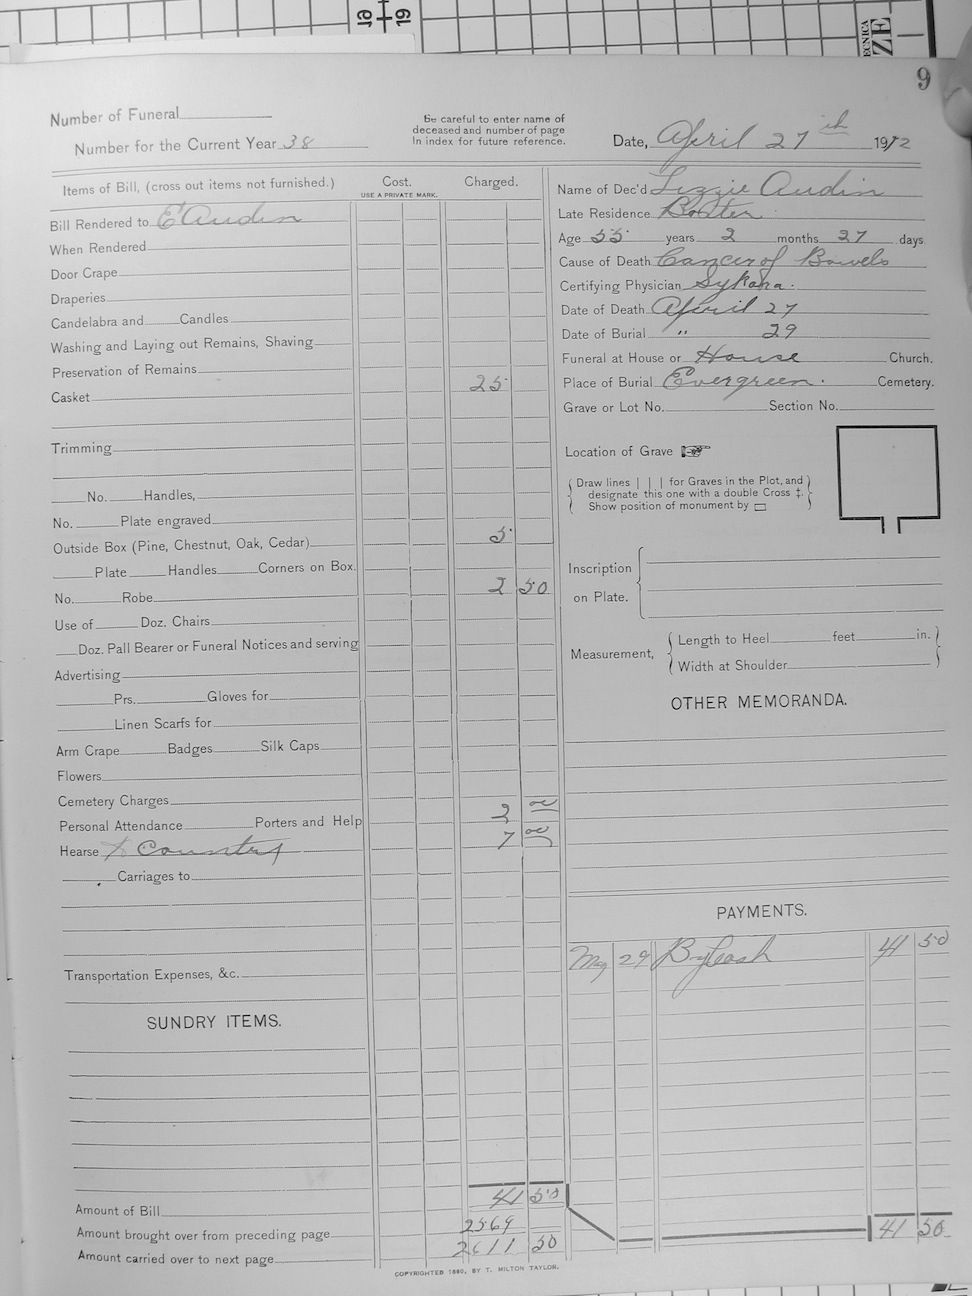 9
Number of Funeral
Number for the Current Year 38
Be careful to enter name of
deceased and number of page
in index for future reference.
Date, April 27th 1912
Items of Bill, (cross out items not furnished.)
Cost.
USE A PRIVATE MARK.
Charged.
Bill Rendered to E Audin
When Rendered
Door Crape
Draperies
Candelabra and Candles
Washing and Laying out Remains, Shaving
Preservation of Remains
Casket 25
Trimming
No. Handles,
No. Plate engraved
Outside Box (Pine, Chestnut, Oak, Cedar) 5
Plate Handles Corners on Box.
No. Robe 2 50
Use of Doz. Chairs
Doz. Pall Bearer or Funeral Notices and serving
Advertising
Prs. Gloves for
Linen Scarfs for
Arm Crape Badges Silk Caps
Flowers
Cemetery Charges
Personal Attendance Porters and Help 2 00
Hearse to Country 7 00
Carriages to
Transportation Expenses, &c.
SUNDRY ITEMS.
Amount of Bill 41 50
Amount brought over from preceding page 2569
Amount carried over to next page 2611 50
Name of Dec'd Lizzie Audin
Late Residence
Age 55 years 2 months 27 days.
Cause of Death Cancer of Bowels
Certifying Physician
Date of Death April 27
Date of Burial " 29
Funeral at House or House Church.
Place of Burial Evergreen. Cemetery.
Grave or Lot No. Section No.
Location of Grave
Draw lines | | | for Graves in the Plot, and
designate this one with a double Cross ‡.
Show position of monument by ▭
Inscription
on Plate.
Measurement,
Length to Heel feet in.
Width at Shoulder
OTHER MEMORANDA.
PAYMENTS.
May 29 By Cash 41 50
41 50
COPYRIGHTED 1880, BY T. MILTON TAYLOR.